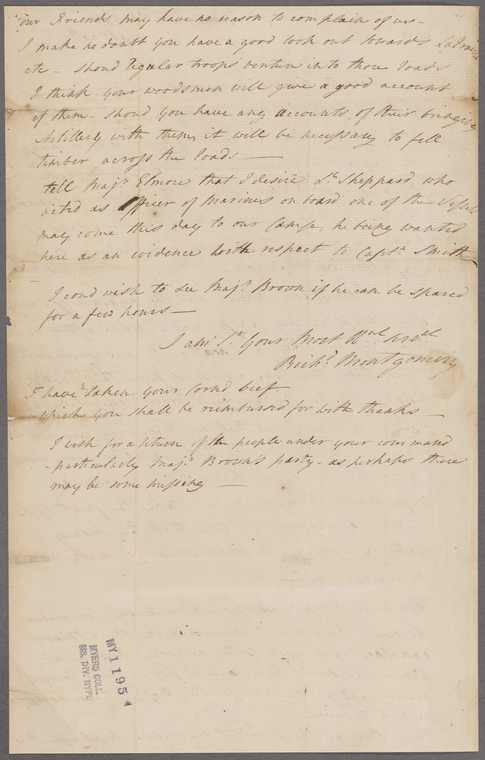 our Friends may have no reason to complain of us –
I make no doubt you have a good look out towards La Prairie
etc – shoud regular troops venture in to those roads
I think your woodsmen will give a good account
of them – shoud you have any accounts of their bringing
Artillery with them, it will be necessary to fell
timber across the roads –
tell Majr Elmore that I desire Lt Sheppard who
acted as Officer of Marines on board one of the Vessels
may come this day to our Camp, he being wanted
here as an evidence with respect to Captn Smith
I coud wish to see Majr Brown if he can be spared
for a few hours –
I am Sr Your most
Richd Montgomery
I have taken your corn'd beef
which you shall be reimbursed for with thanks –
I wish for a return of the people under your command
– particularly Majr Brown's party – as perhaps there
may be some missing –
MY 11 95
MYERS COLL.
MS. DIV. NYPL